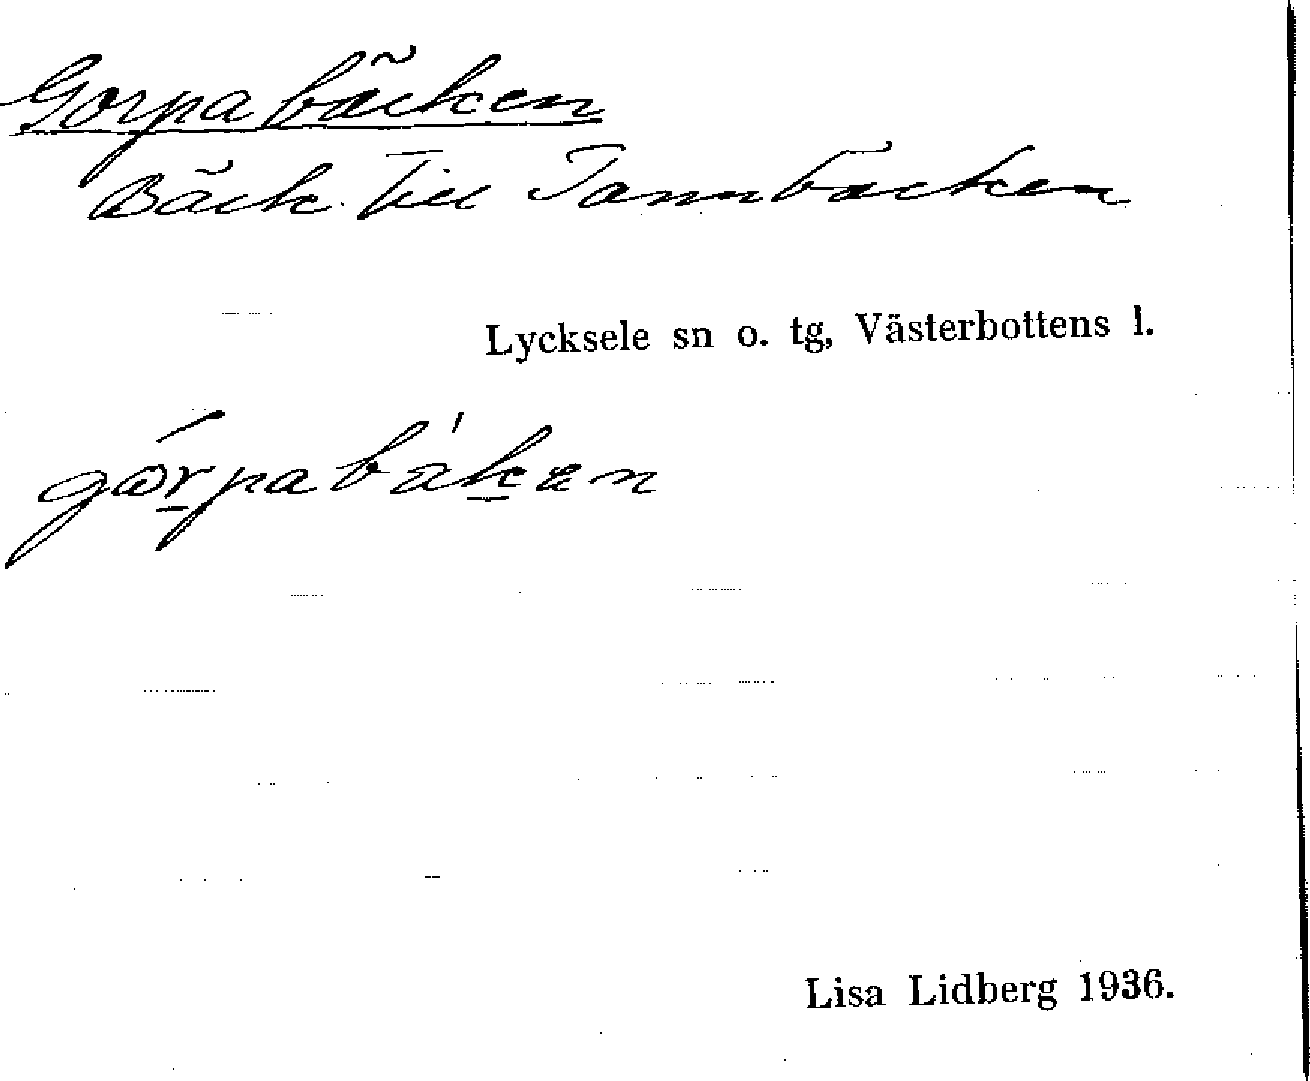 Gorpabäcken
Bäck till Tannbäcken
Lycksele sn o. tg, Västerbottens l.
Lisa Lidberg 1936.